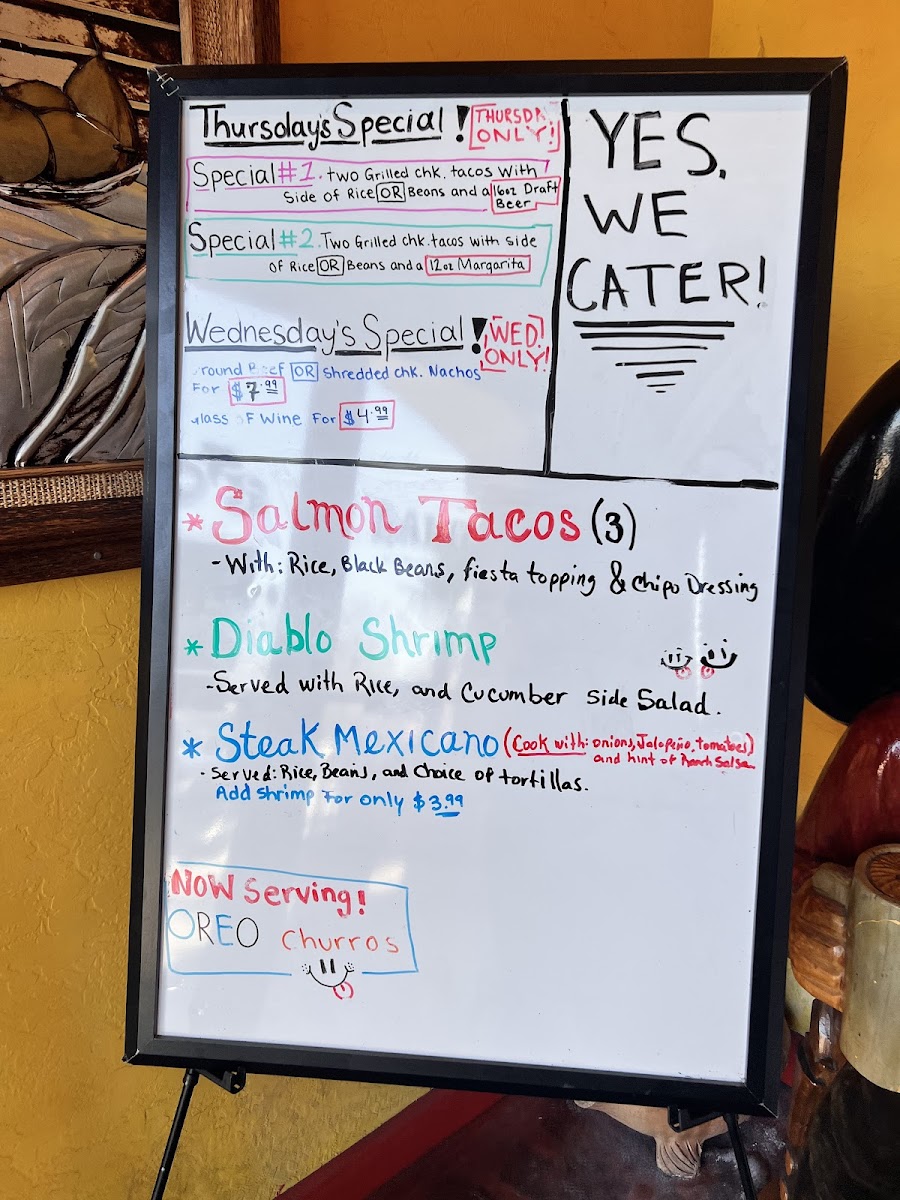 Thursday's Special !
THURSDA
ONLY!
Special #1. two Grilled chk. tacos with
Side of Rice OR Beans and a 16oz Draft
Beer
Special #2. Two Grilled chk. tacos with side
of Rice OR Beans and a 12oz Margarita
Wednesday's Special !
WED.
ONLY!
round Beef OR shredded chk. Nachos
For $7.99
glass of Wine For $4.99
YES,
WE
CATER!
* Salmon Tacos (3)
- With: Rice, Black Beans, fiesta topping & chipo Dressing
* Diablo Shrimp
- Served with Rice, and Cucumber side Salad.
* Steak Mexicano (Cook with: onions, Jalapeño, tomatoes)
and hint of Ranch Salsa
- Served: Rice, Beans, and Choice of tortillas.
Add shrimp For only $3.99
NOW Serving!
OREO Churros